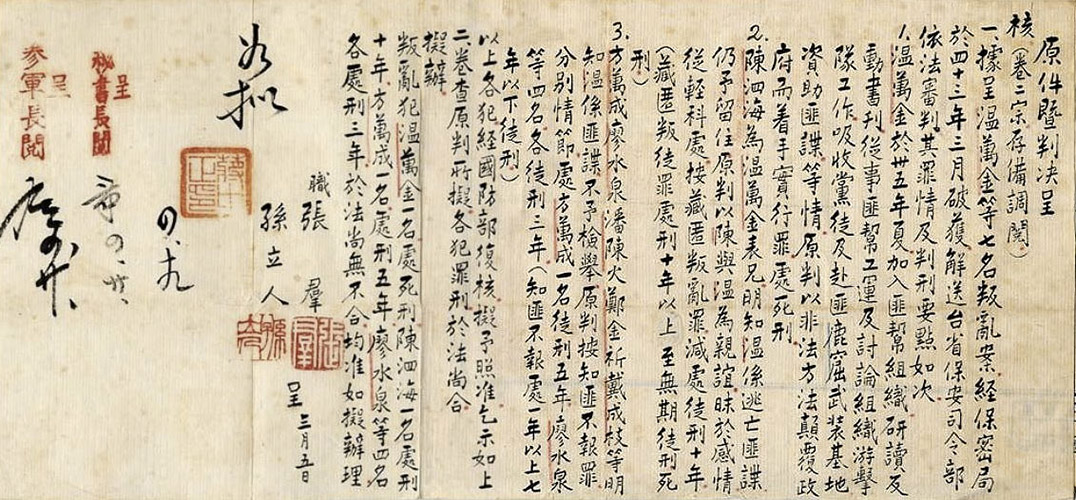 原件暨判決呈
核（卷二宗存備調閱）
一、據呈溫萬金等七名叛亂案經保密局
於四十三年三月破獲解送台省保安司令部
依法審判其罪情及判刑要點如次
1.溫萬金於卅五年夏加入匪幫組織研讀反
動書刊從事匪幫工運及討論組織游擊
隊工作吸收黨徒及赴匪鹿窟武裝基地
資助匪諜等情原判以非法方法顛覆政
府而着手實行罪處死刑
2.陳泗海為溫萬金表兄明知溫係逃亡匪諜
仍予留住原判以陳與溫為親誼昧於感情
從輕科處按藏匿叛亂罪減處有徒刑十年
（藏匿叛徒罪處刑十年以上至無期徒刑死
刑）
3.方萬成廖水泉潘陳火鄭金祈戴成枝等明
知溫係匪諜不予檢舉原判按知匪不報罪
分別情節處方萬成一名徒刑五年廖水泉
等四名各徒刑三年（知匪不報處一年以上七
年以下徒刑）
以上各犯經國防部復核擬予照准乞示如上
二、卷查原判所擬各犯罪刑於法尚合
擬辦
叛亂犯溫萬金一名處死刑陳泗海一名處刑
十年方萬成一名處刑五年廖水泉等四名
各處刑三年於法尚無不合均准如擬辦理
職張 羣
孫立人
呈 三月五日
如擬
蔣中正印
四、九
呈
秘書長閱
呈
參軍長閱